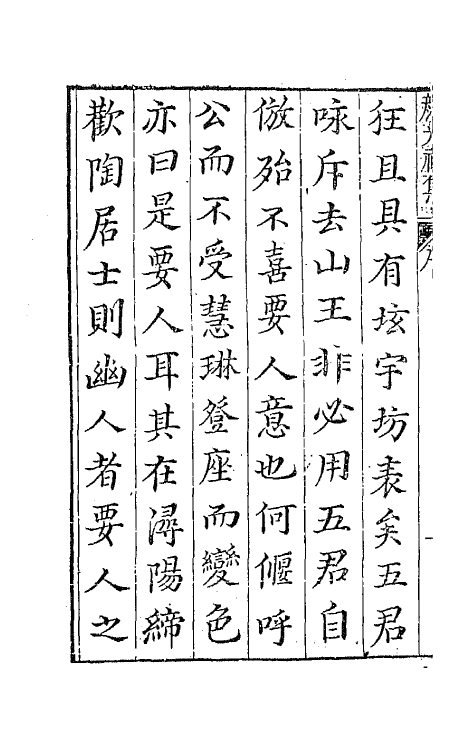 狂且具有垓宇坊表矣五君
咏斥去山王非必用五君自
倣殆不喜要人意也何偃呼
公而不受慧琳登座而變色
亦曰是要人耳其在潯陽締
歡陶居士則幽人者要人之